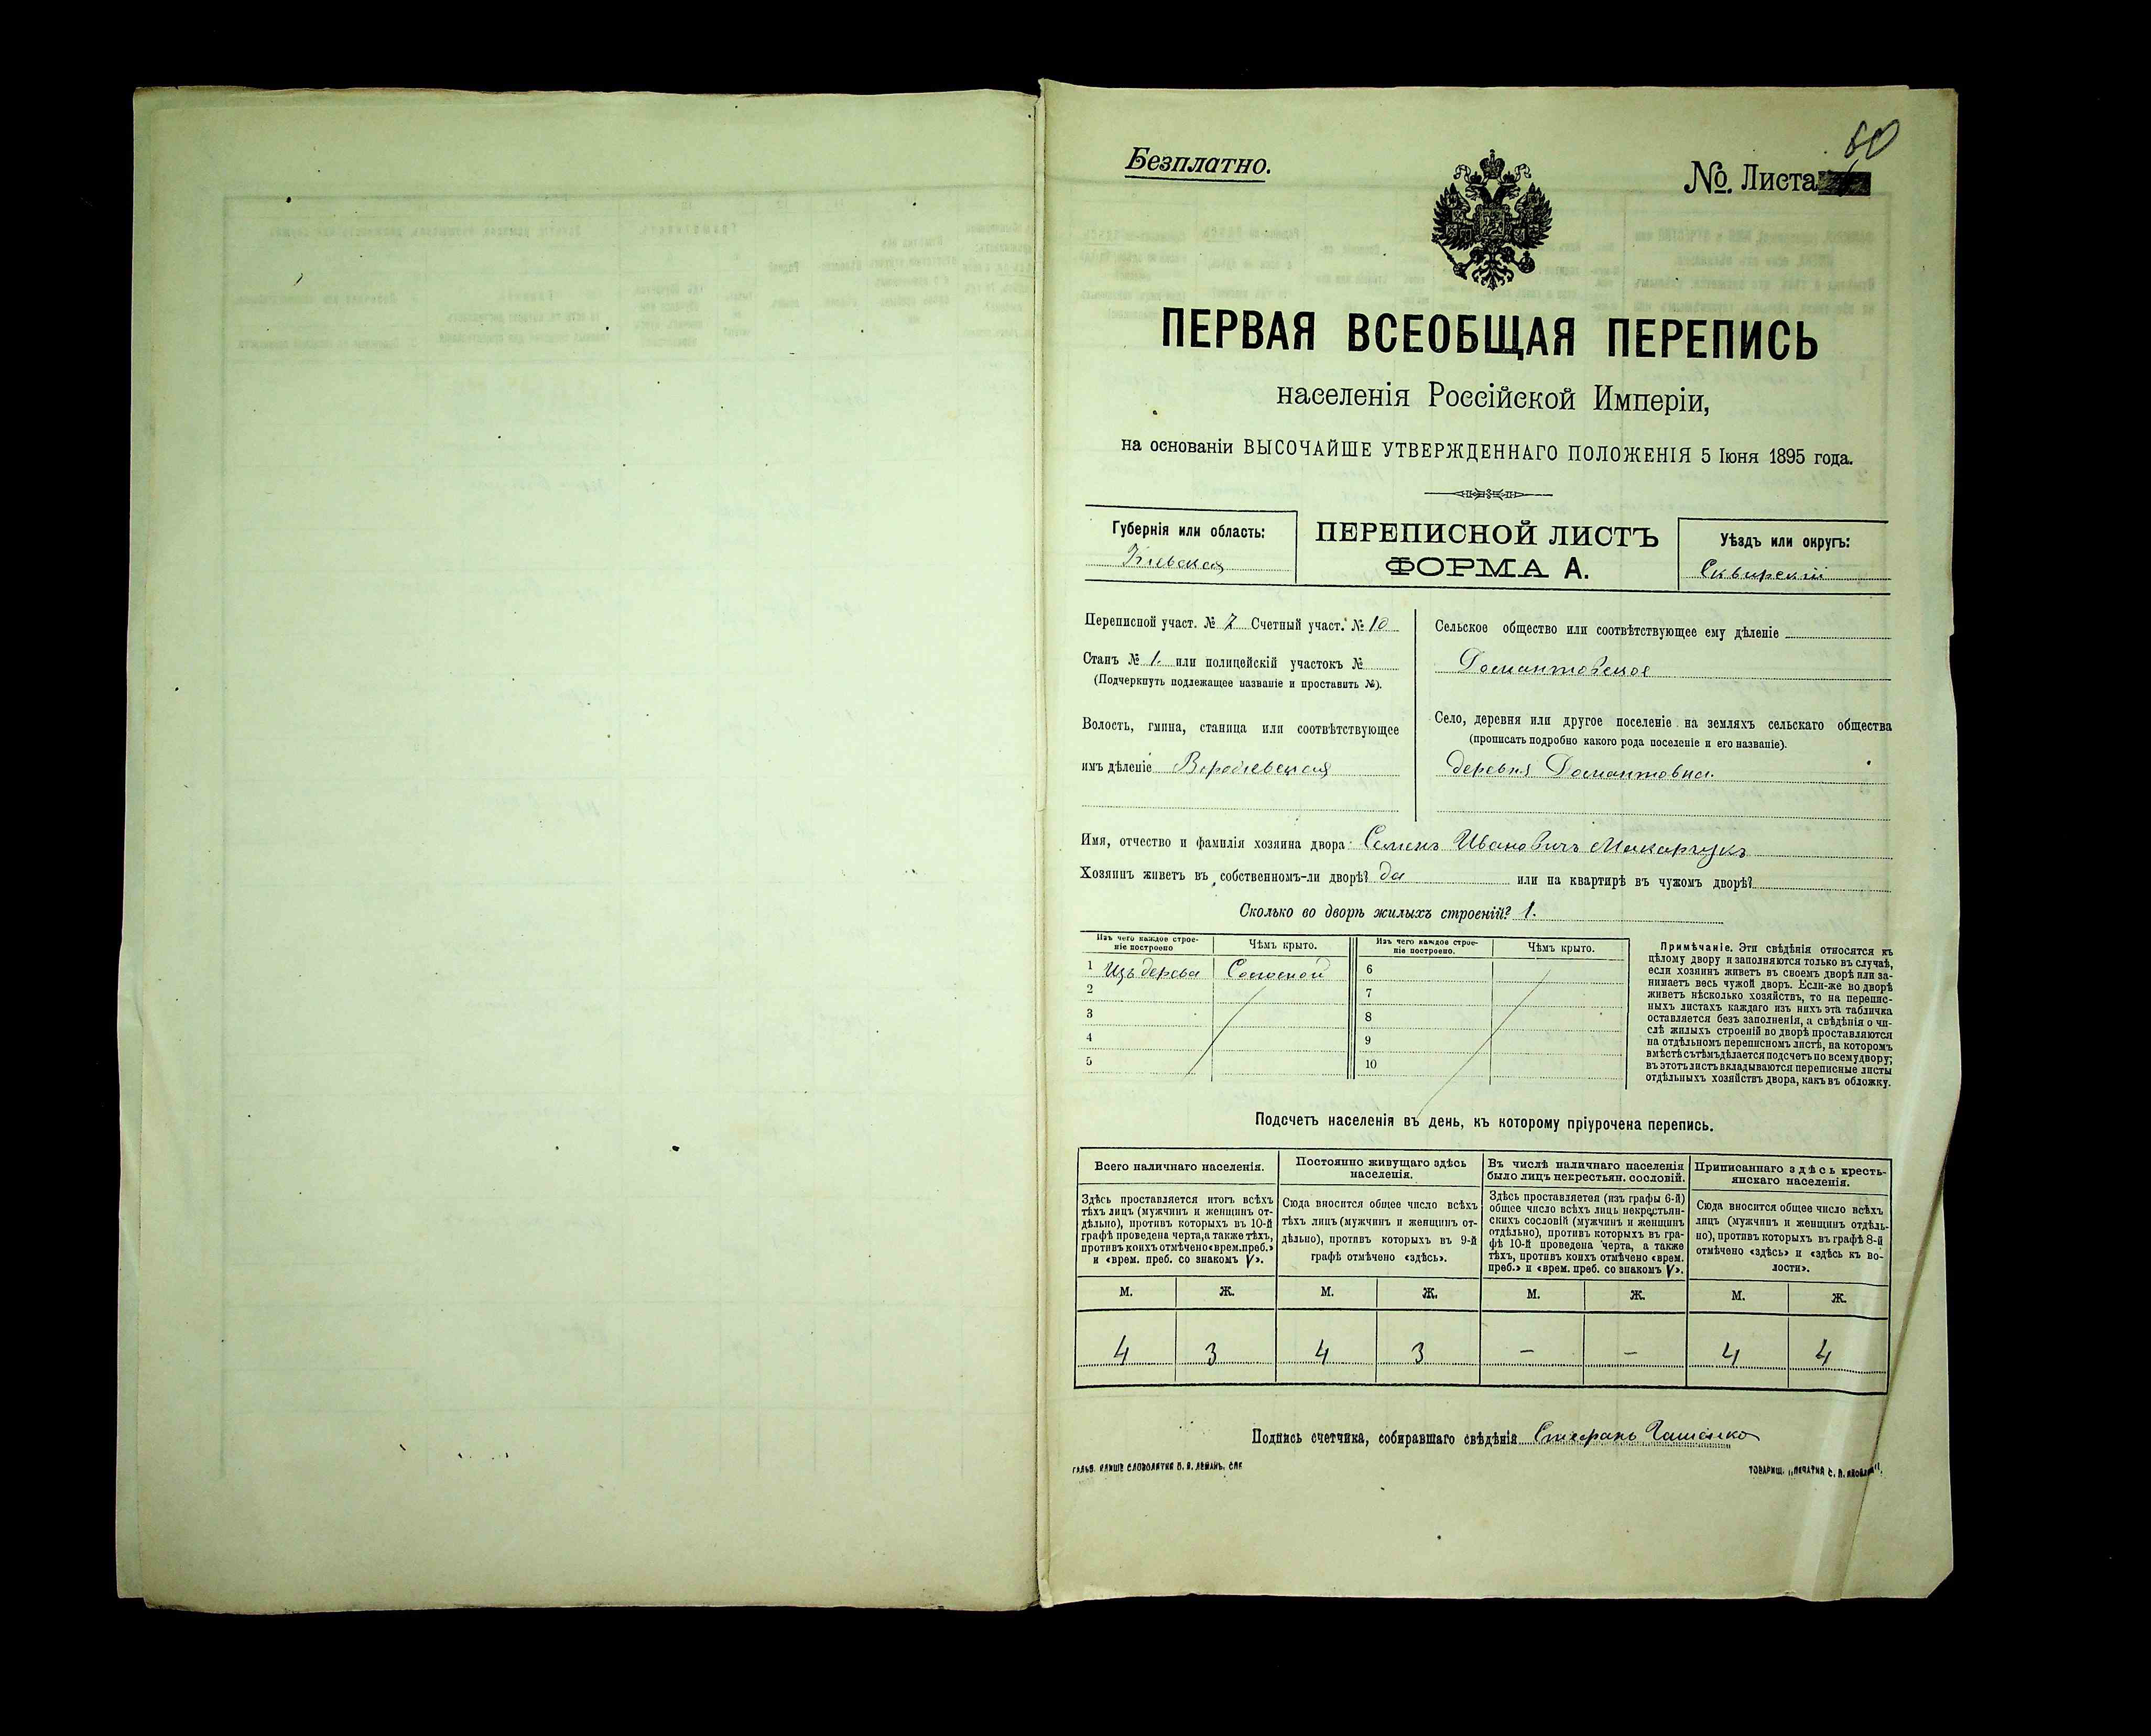 60
Безплатно.
№. Листа
ПЕРВАЯ ВСЕОБЩАЯ ПЕРЕПИСЬ
населенія Россійской Имперіи,
на основаніи ВЫСОЧАЙШЕ УТВЕРЖДЕННАГО ПОЛОЖЕНІЯ 5 Іюня 1895 года.
Губернія или область:
Кіевская
ПЕРЕПИСНОЙ ЛИСТЪ
ФОРМА А.
Уѣздъ или округъ:
Сквирскій
Переписной участ. № 7 Счетный участ. № 10
Станъ № 1. или полицейскій участокъ №
(Подчеркнуть подлежащее названіе и проставить №).
Волость, гмина, станица или соотвѣтствующее
имъ дѣленіе
Сельское общество или соотвѣтствующее ему дѣленіе
Домантовское
Село, деревня или другое поселеніе на земляхъ сельскаго общества
(прописать подробно какого рода поселеніе и его названіе).
деревня Домантовка.
Имя, отчество и фамилія хозяина двора: Семенъ Ивановичъ Макарчукъ
Хозяинъ живетъ въ собственномъ-ли дворѣ? да или на квартирѣ въ чужомъ дворѣ?
Сколько во дворѣ жилыхъ строеній? 1.
Изъ чего каждое строе-
ніе построено
Чѣмъ крыто.
1 Изъ дерева Соломой
2
3
4
5
Изъ чего каждое строе-
ніе построено.
Чѣмъ крыто.
6
7
8
9
10
Примѣчаніе. Эти свѣдѣнія относятся къ
цѣлому двору и заполняются только въ случаѣ,
если хозяинъ живетъ въ своемъ дворѣ или за-
нимаетъ весь чужой дворъ. Если-же во дворѣ
живетъ нѣсколько хозяйствъ, то на перепис-
ныхъ листахъ каждаго изъ нихъ эта табличка
оставляется безъ заполненія, а свѣдѣнія о чи-
слѣ жилыхъ строеній во дворѣ проставляются
на отдѣльномъ переписномъ листѣ, на которомъ
вмѣстѣ съ тѣмъ дѣлается подсчетъ по всему двору;
въ этотъ листъ вкладываются переписные листы
отдѣльныхъ хозяйствъ двора, какъ въ обложку.
Подсчетъ населенія въ день, къ которому пріурочена перепись.
Всего наличнаго населенія.
Здѣсь проставляется итогъ всѣхъ
тѣхъ лицъ (мужчинъ и женщинъ от-
дѣльно), противъ которыхъ въ 10-й
графѣ проведена черта, а также тѣхъ,
противъ коихъ отмѣчено «врем. преб.»
и «врем. преб. со знакомъ V».
М. Ж.
4 3
Постоянно живущаго здѣсь
населенія.
Сюда вносится общее число всѣхъ
тѣхъ лицъ (мужчинъ и женщинъ от-
дѣльно), противъ которыхъ въ 9-й
графѣ отмѣчено «здѣсь».
М. Ж.
4 3
Въ числѣ наличнаго населенія
было лицъ некрестьян. сословій.
Здѣсь проставляется (изъ графы 6-й)
общее число всѣхъ лицъ некрестьян-
скихъ сословій (мужчинъ и женщинъ
отдѣльно), противъ которыхъ въ гра-
фѣ 10-й проведена черта, а также
тѣхъ, противъ коихъ отмѣчено «врем.
преб.» и «врем. преб. со знакомъ V».
М. Ж.
– –
Приписаннаго здѣсь кресть-
янскаго населенія.
Сюда вносится общее число всѣхъ
лицъ (мужчинъ и женщинъ отдѣль-
но), противъ которыхъ въ графѣ 8-й
отмѣчено «здѣсь» и «здѣсь къ во-
лости».
М. Ж.
4 4
Подпись счетчика, собиравшаго свѣдѣнія Стефанъ
ГАЛЬВ. КЛИШЕ СЛОВОЛИТНИ О. И. ЛЕМАНЪ, СПБ
ТОВАРИЩ. „ПЕЧАТНЯ С. П. ЯКОВЛЕВА".